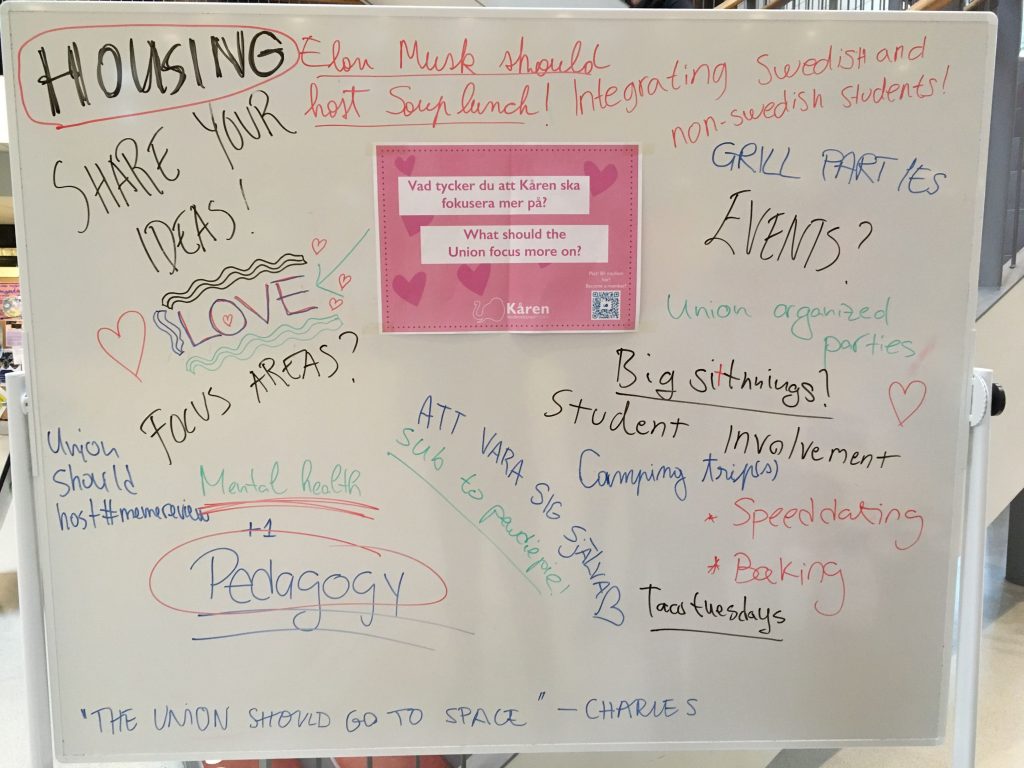 HOUSING
Elon Musk should
host Soup lunch!
Integrating Swedish and
non-swedish students!
SHARE YOUR
IDEAS!
GRILL PARTIES
Vad tycker du att Kåren ska
fokusera mer på?
What should the
Union focus more on?
Become a member!
Kåren
EVENTS?
LOVE
Union organized
parties
FOCUS AREAS?
Big sittnings?
Student Involvement
Union
Should
host #memereview
Mental health
ATT VARA SIG SJÄLVA
sub to pewdiepie!
Camping trip(s)
* Speeddating
+1
Pedagogy
* Baking
Tacos tuesdays
"THE UNION SHOULD GO TO SPACE" - CHARLES